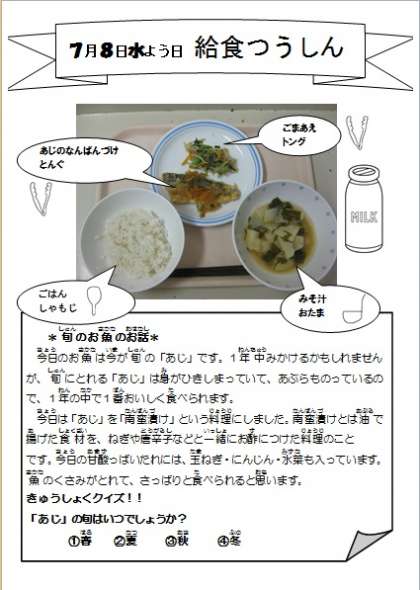 7月8日水よう日 給食つうしん
ごまあえ
トング
あじのなんばんづけ
とんぐ
MILK
ごはん
しゃもじ
みそ汁
おたま
＊旬のお魚のお話＊
今日のお魚は今が旬の「あじ」です。1年中みかけるかもしれません
が、旬にとれる「あじ」は身がひきしまっていて、あぶらものっているの
で、1年の中で1番おいしく食べられます。
今日は「あじ」を「南蛮漬け」という料理にしました。南蛮漬けとは油で
揚げた食材を、ねぎや唐辛子などと一緒にお酢につけた料理のこと
です。今日の甘酸っぱいたれには、玉ねぎ・にんじん・水菜も入っています。
魚のくさみがとれて、さっぱりと食べられると思います。
きゅうしょくクイズ！！
「あじ」の旬はいつでしょうか？
①春 ②夏 ③秋 ④冬